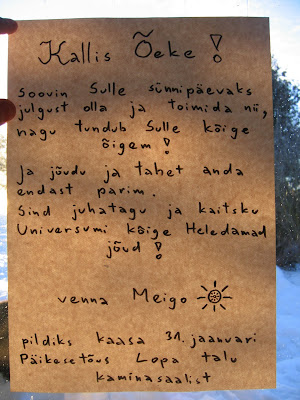 Kallis Õeke !
Soovin Sulle sünnipäevaks
julgust olla ja toimida nii,
nagu tundub Sulle kõige
õigem !
Ja jõudu ja tahet anda
endast parim.
Sind juhatagu ja kaitsku
Universumi kõige Heledamad
jõud !
venna Meigo
pildiks kaasa 31. jaanuari
Päikesetõus Lopa talu
kaminasaalist